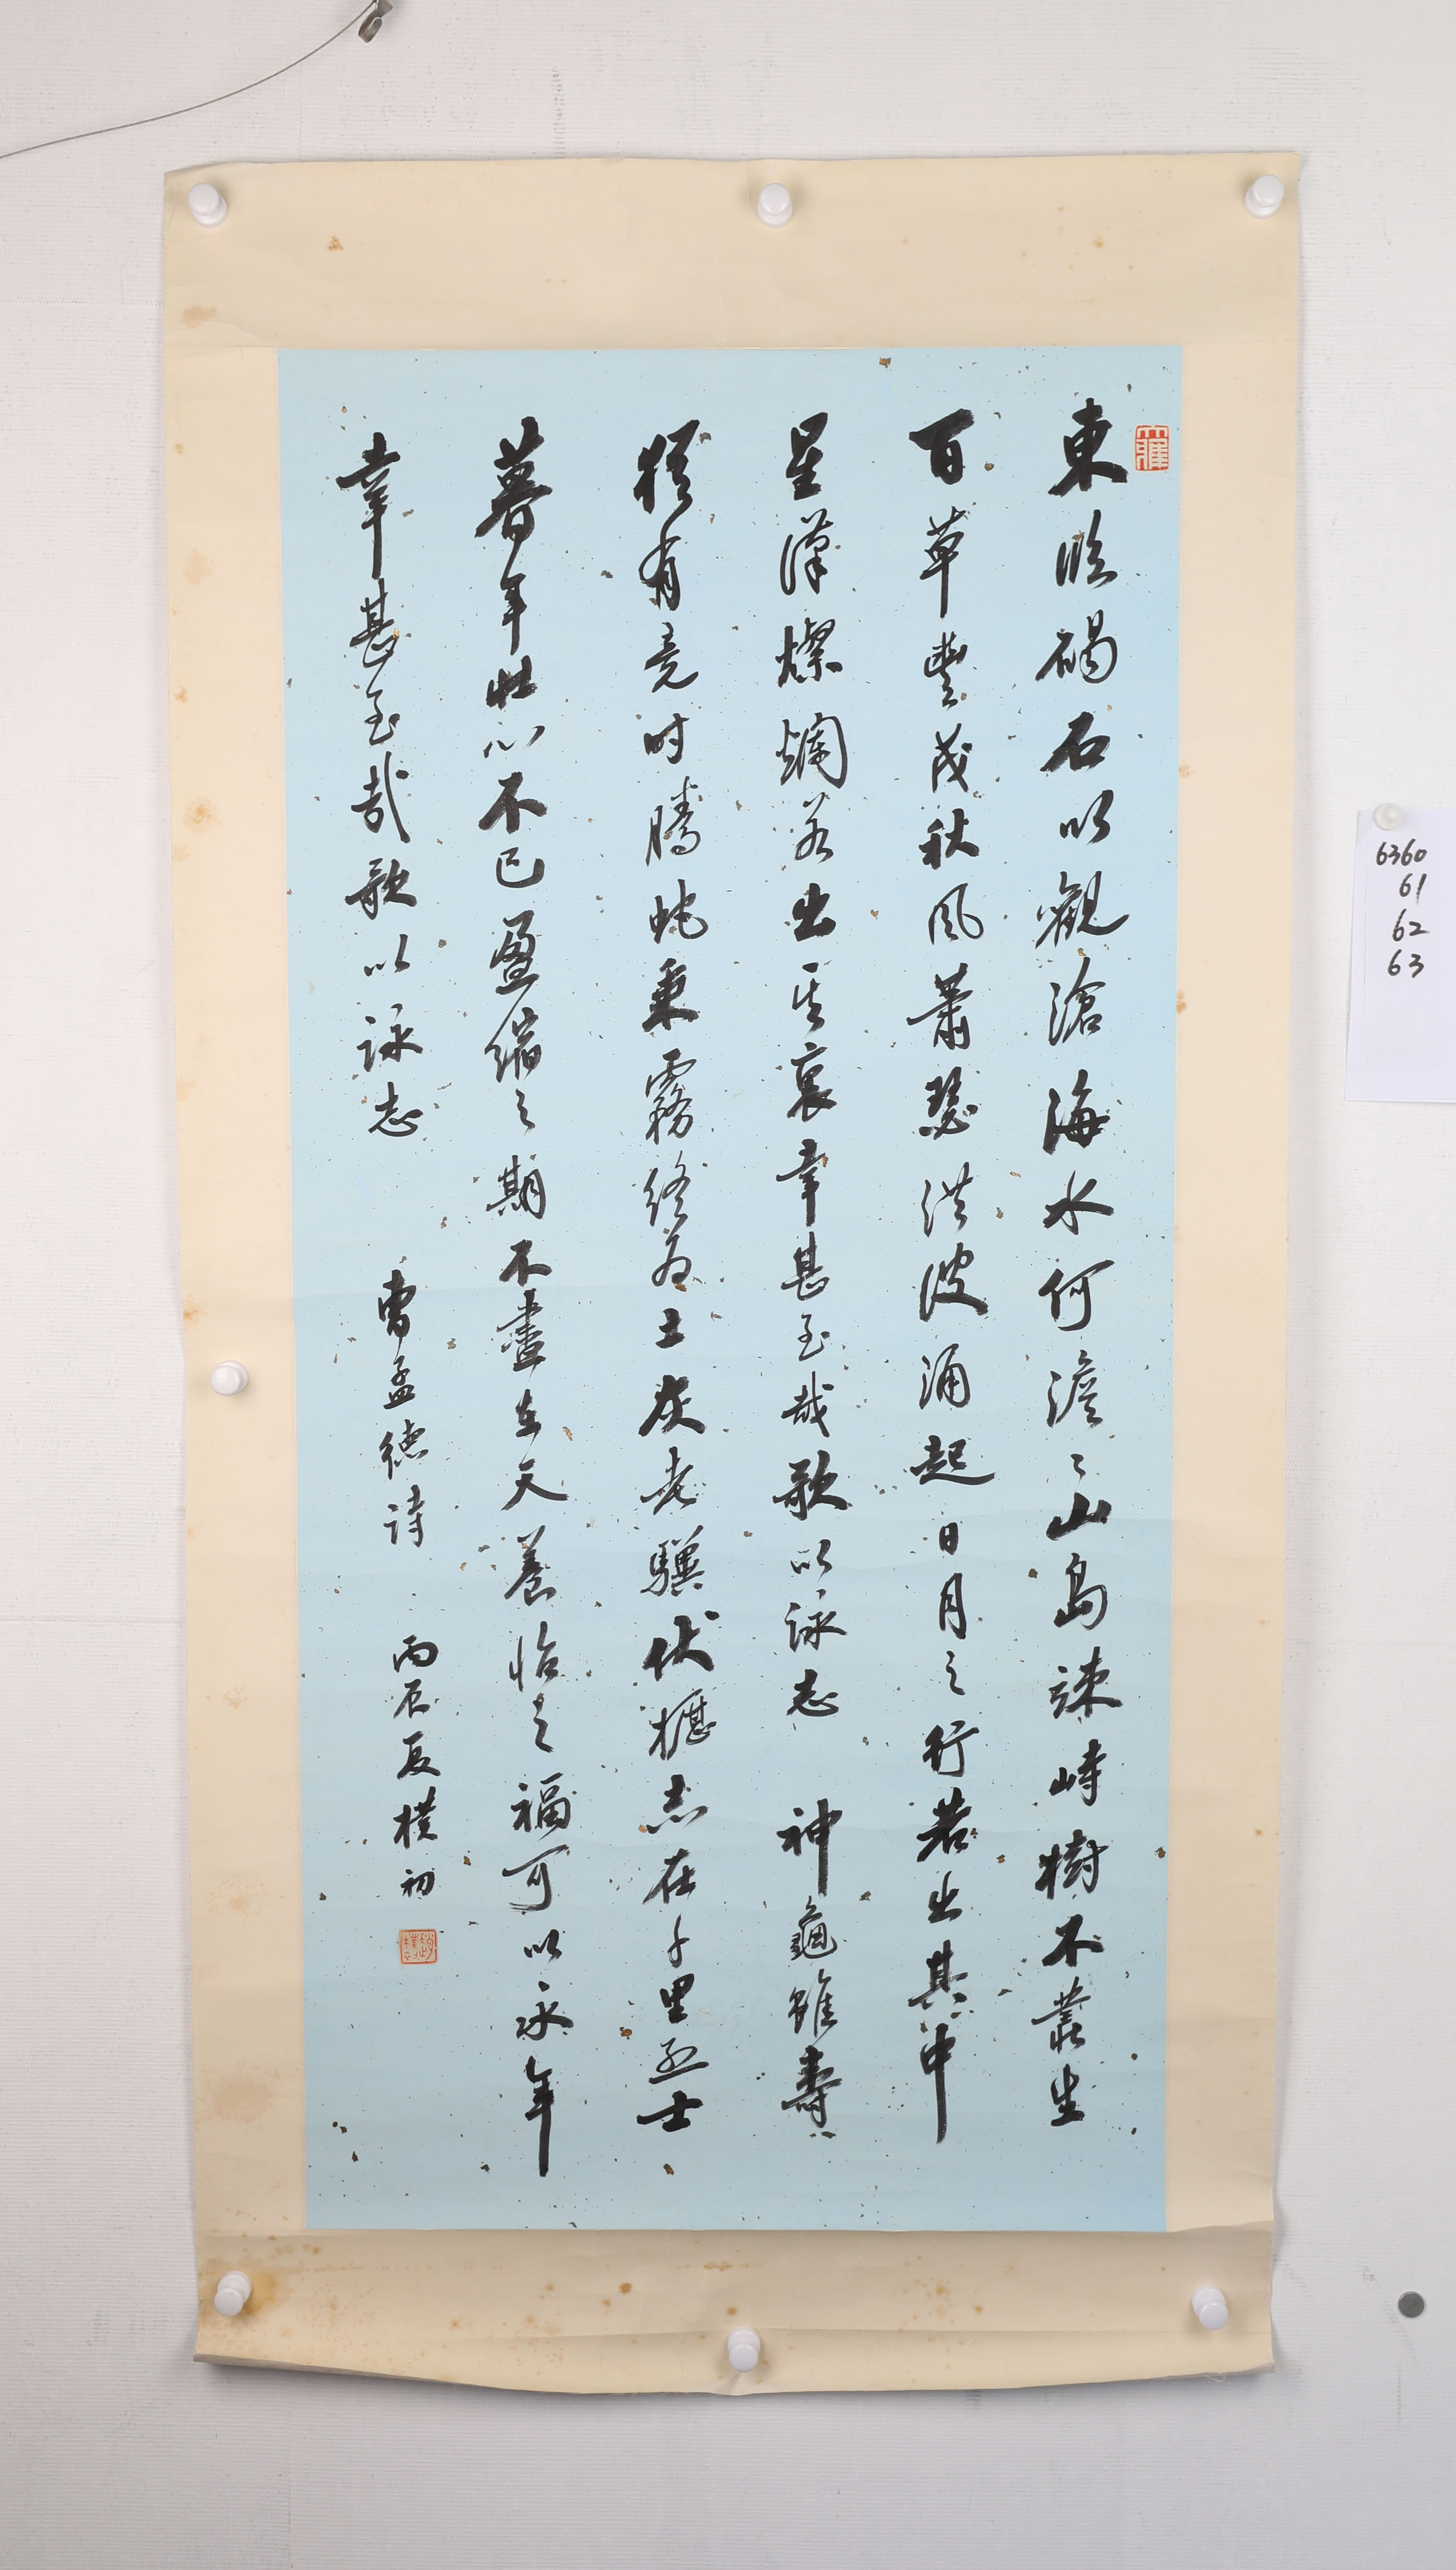 東臨碣石以觀滄海水何澹〻山島竦峙樹不叢生
百草豐茂秋風蕭瑟洪波涌起日月之行若出其中
星漢燦爛若出其裏幸甚至哉歌以詠志 神龜雖壽
猶有竟時騰蛇乘霧終為土灰老驥伏櫪志在千里烈士
暮年壯心不已盈縮之期不盡在天養怡之福可以永年
幸甚至哉歌以詠志 曹孟德詩 丙辰夏樸初
趙樸初
6360
61
62
63